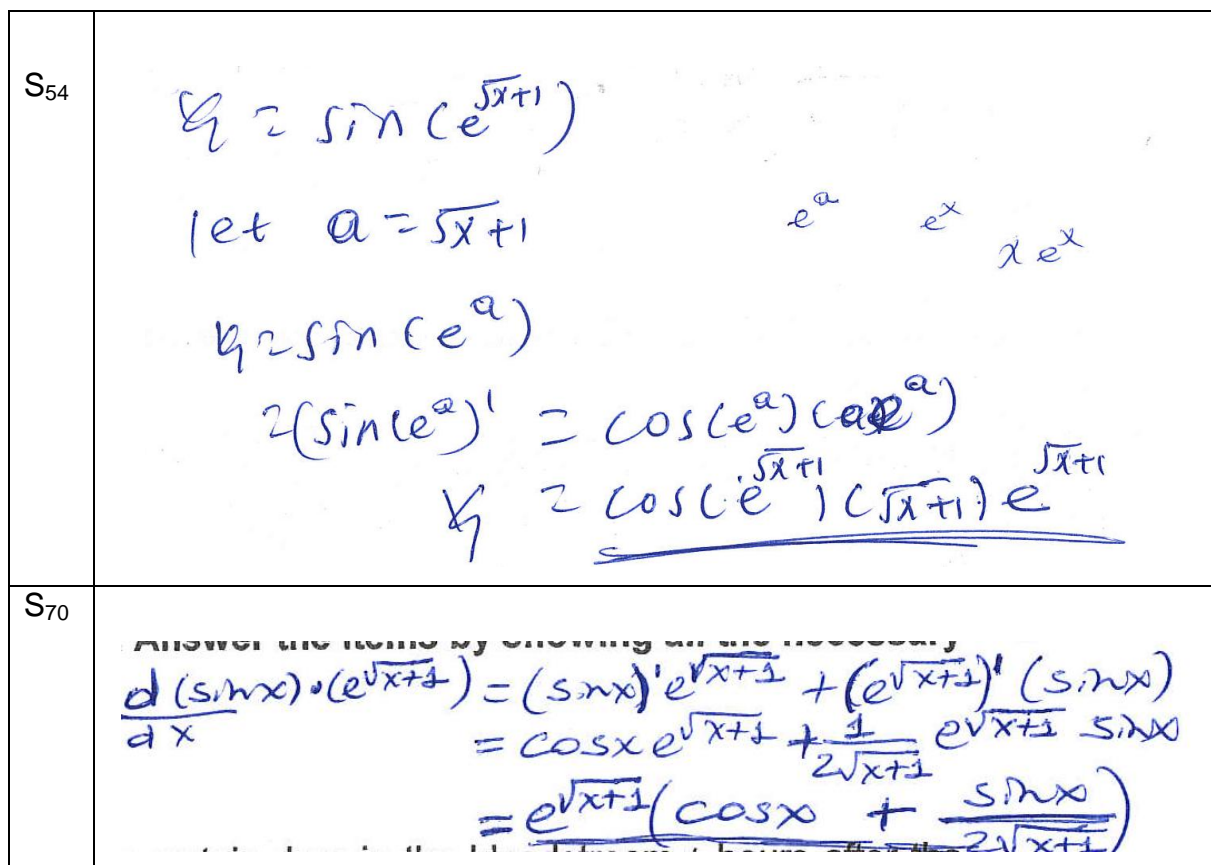 S₅₄
y = sin(e^{√x+1})
let a = √x+1
e^a e^x x e^x
y = sin(e^a)
=(sin(e^a)' = cos(e^a)( e^a)
y = cos(e^{√x+1})(√x+1) e^{√x+1}
S₇₀
Answer the items by showing all the necessary
d/dx (sinx)·(e^{√x+1}) = (sinx)'e^{√x+1} + (e^{√x+1})' (sinx)
= cosx e^{√x+1} + 1/(2√x+1) e^{√x+1} sinx
= e^{√x+1}(cosx + sinx/(2√x+1))